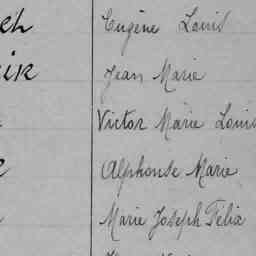 Eugène Louis
Jean Marie
Victor Marie Louis
Alphonse Marie
Marie Joseph Félix